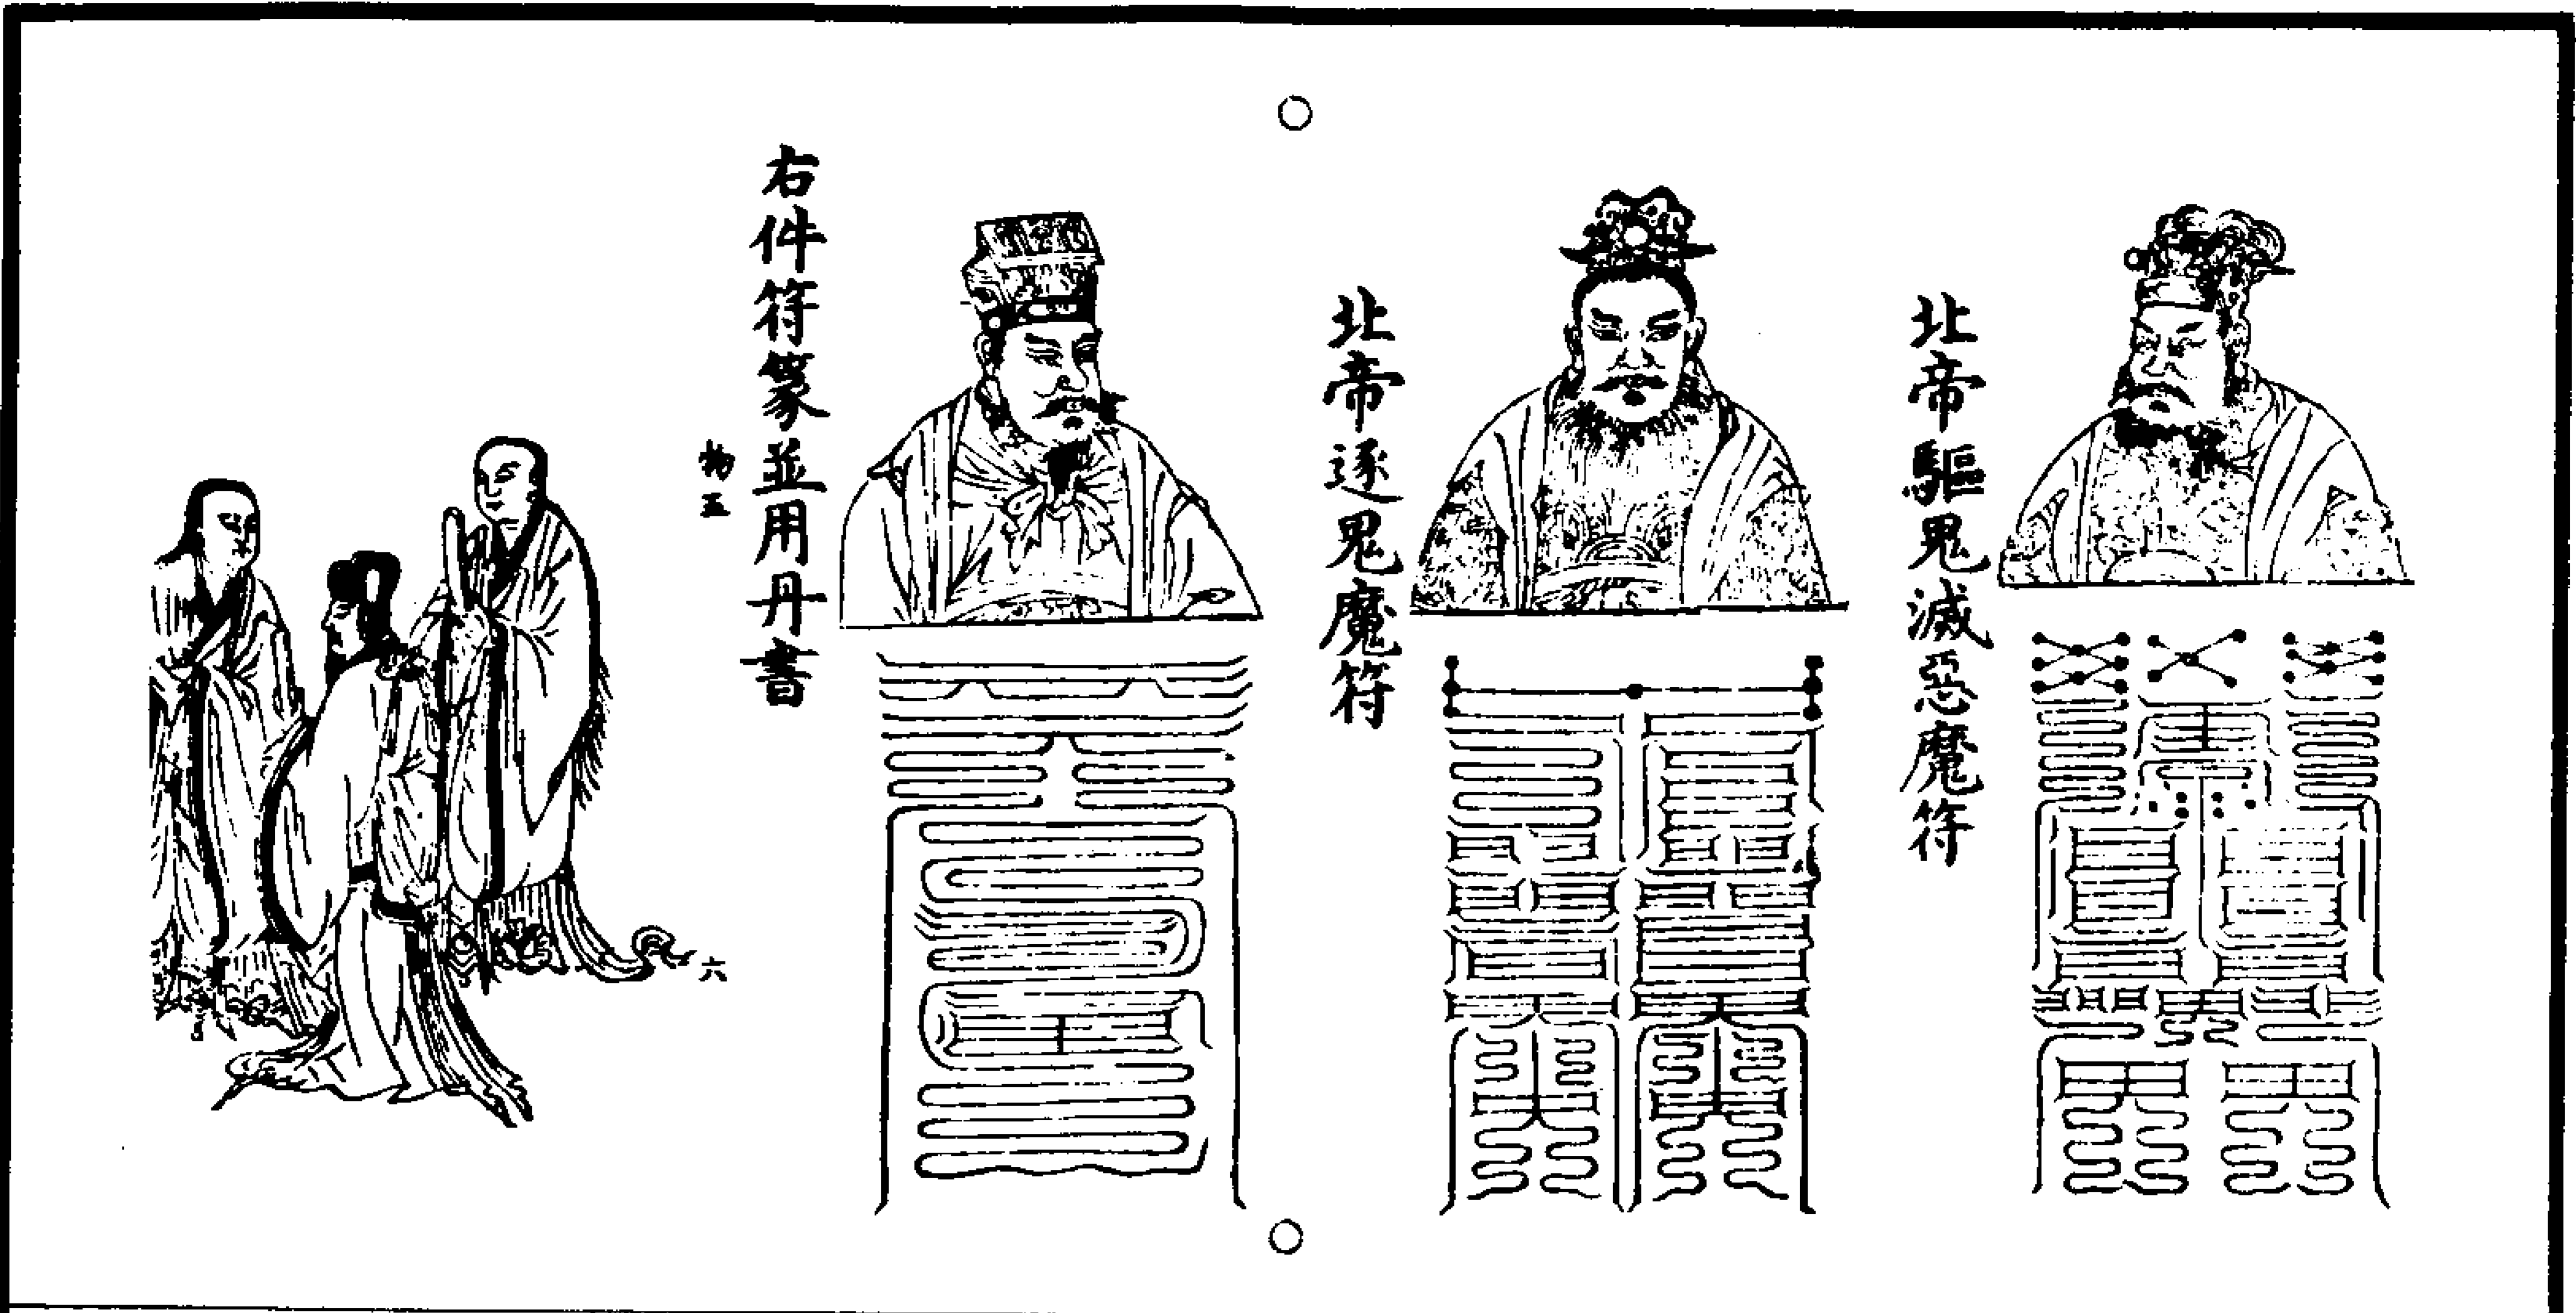 北帝驅鬼滅惡魔符
北帝逐鬼魔符
右件符篆並用丹書
物五
六